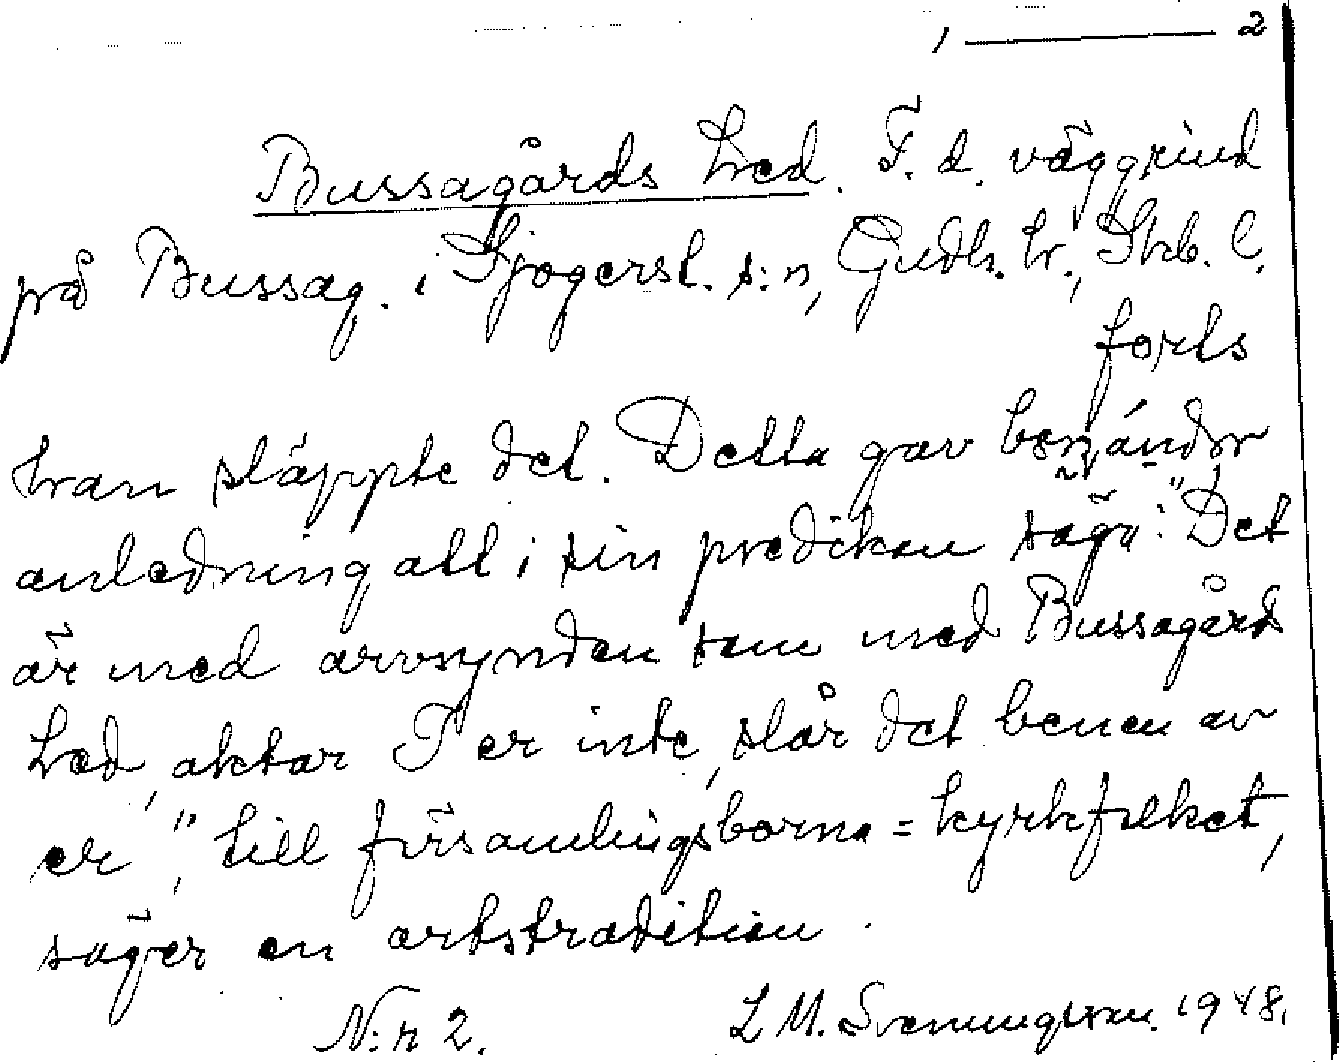 1 ——— 2
Bussagårds Led. F. d. väggrind
på Bussag. i Sjogerst. s:n, Gudh. hr., Skb. l.
forts
han släppte det. Detta gav
anledning att i sin predikan säga: "Det
är med arvsynden som med Bussagårds
Led, aktar I er inte, slår det benen av
er", till församlingsborna = kyrkfolket,
säger en ortstradition.
N:r 2. L M. Svenungsson. 1948.